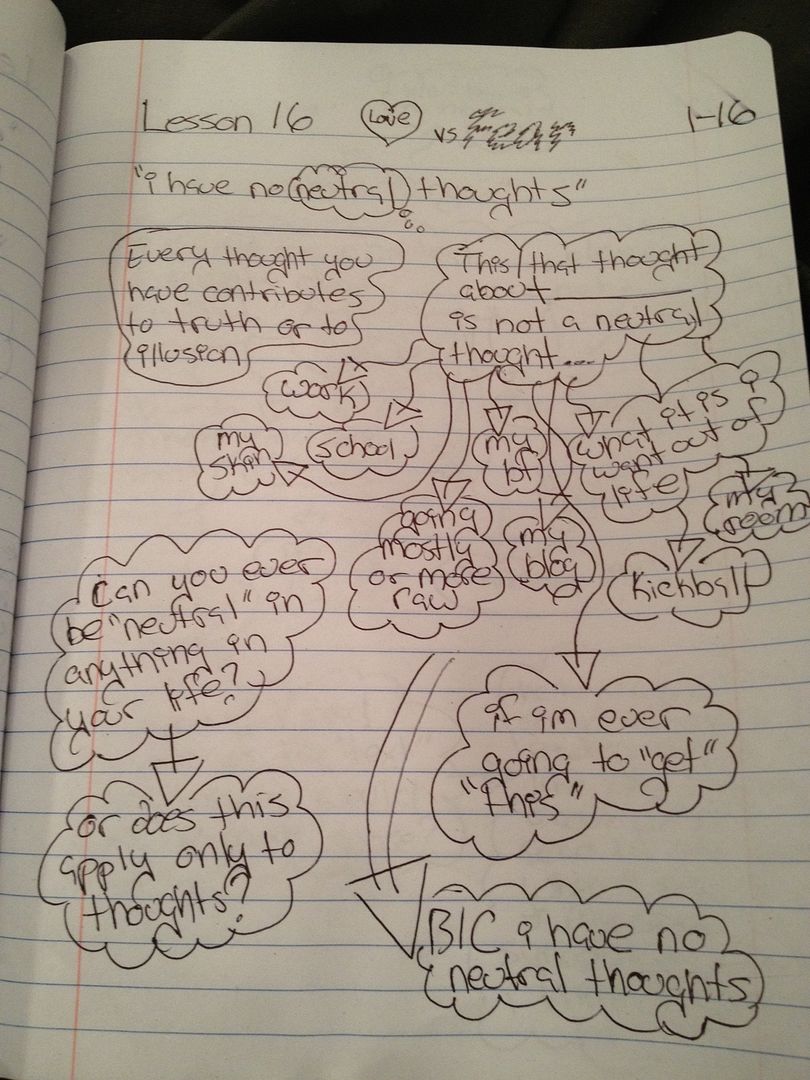 Lesson 16 Love vs Fear 1-16
"i have no neutral thoughts"
Every thought you
have contributes
to truth or to
illusion
This/that thought
about __________
is not a neutral
thought...
work
school
my
skin
my
bf
what it is i
want out of
life
my
room
going
mostly
or more
raw
my
blog
Kickball
Can you ever
be "neutral" in
anything in
your life?
or does this
apply only to
thoughts?
if im ever
going to "get"
"this"
B/C i have no
neutral thoughts